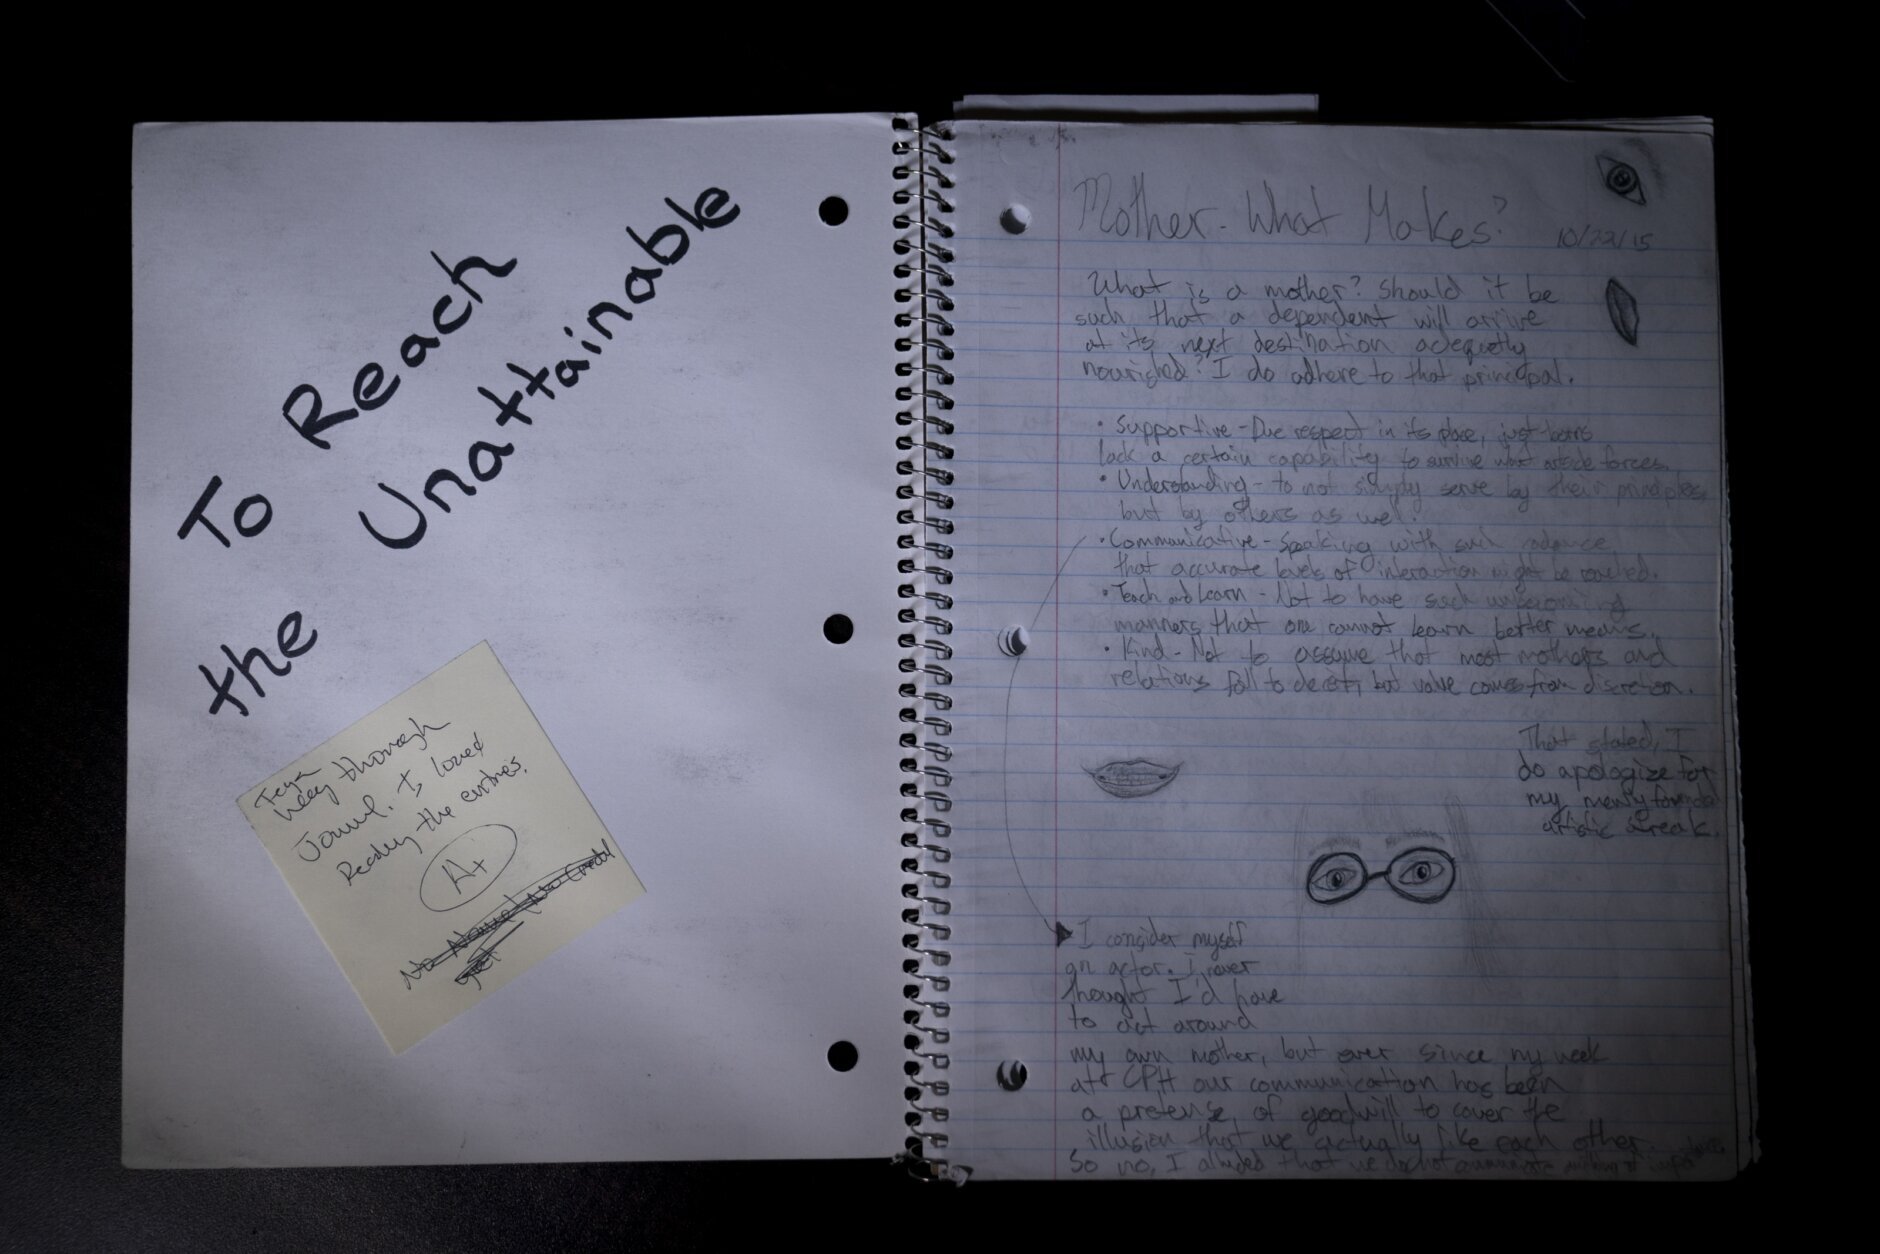 To Reach
the Unattainable
Very thorough
Journal. I loved
Reading the entries.
A+
No Name / No Credit
Mother - What Makes?
10/22/15
What is a mother? Should it be
such that a dependent will arrive
at its next destination adequetly
nourished? I do adhere to that principal.
• Supportive - Due respect in its place, just-borns
lack a certain capability to survive what outside forces.
• Understanding - to not simply serve by their principles
but by others as well.
• Communicative - Speaking with such cadence
that accurate levels of interaction might be reached.
• Teach and Learn - Not to have such unbecoming
manners that one cannot learn better means.
• Kind - Not to assume that most mothers and
relations fall to deceit, but value comes from discretion.
That stated, I
do apologize for
my newly formed
artistic streak.
I consider myself
an actor. I never
thought I'd have
to act around
my own mother, but ever since my week
at CPH our communication has been
a pretense of goodwill to cover the
illusion that we actually like each other.
So no, I that we do not